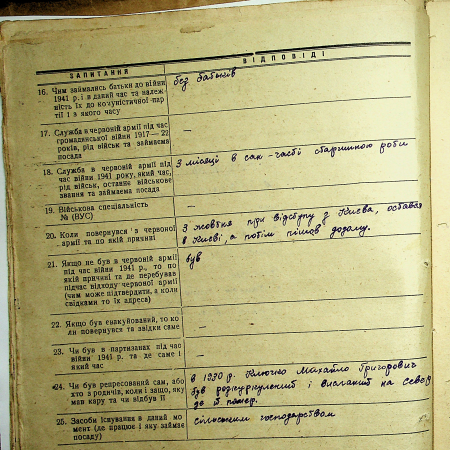 ЗАПИТАННЯ
ВІДПОВІДІ
16. Чим займались батьки до війни
1941 р. і в даний час та належ-
ність їх до комуністичної пар-
тії і в якого часу
без батьків
17. Служба в червоній армії під час
громадянської війни 1917—22
років, рід військ та займаєма
посада
—
18. Служба в червоній армії під
час війни 1941 року, який час,
рід військ, останнє військове
звання та займаєма посада
3 місяці в сан-часті старшиною роти
19. Військова спеціальність
№ (ВУС)
—
20. Коли повернувся з червоної
армії та по якій причині
З жовтня при відступу з Києва, остався
в Києві, а потім пішов додому.
21. Якщо не був в червоній армії
під час війни 1941 р., то по
якій причині та де перебував
підчас відходу червоної армії
(чим може підтвердити, а коли
свідками то їх адреса)
був
22. Якщо був евакуйований, то ко-
ли повернувся та звідки саме
—
23. Чи був в партизанах під час
війни 1941 р. та де саме і
який час
—
24. Чи був репресований сам, або
хто з родичів, коли і защо, яку
мав кару та чи відбув її
в 1930 р. Ключко Михайло Григорович
був розкуркулений і висланий на север
де й помер.
25. Засоби існування в даний мо-
мент (де працює і яку займає
посаду)
сільським господарством